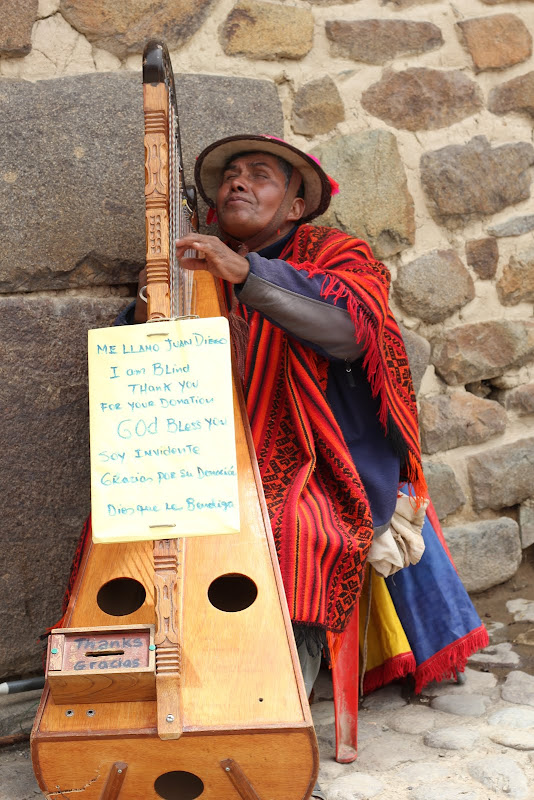 ME LLAMO JUAN DIEGO
I am BLIND
THANK YOU
FOR YOUR DONATION
GOD BLESS YOU
SOY INVIDENTE
GRACIAS POR SU DONACIÓN
DIOS QUE LE BENDIGA
THANKS
GRACIAS